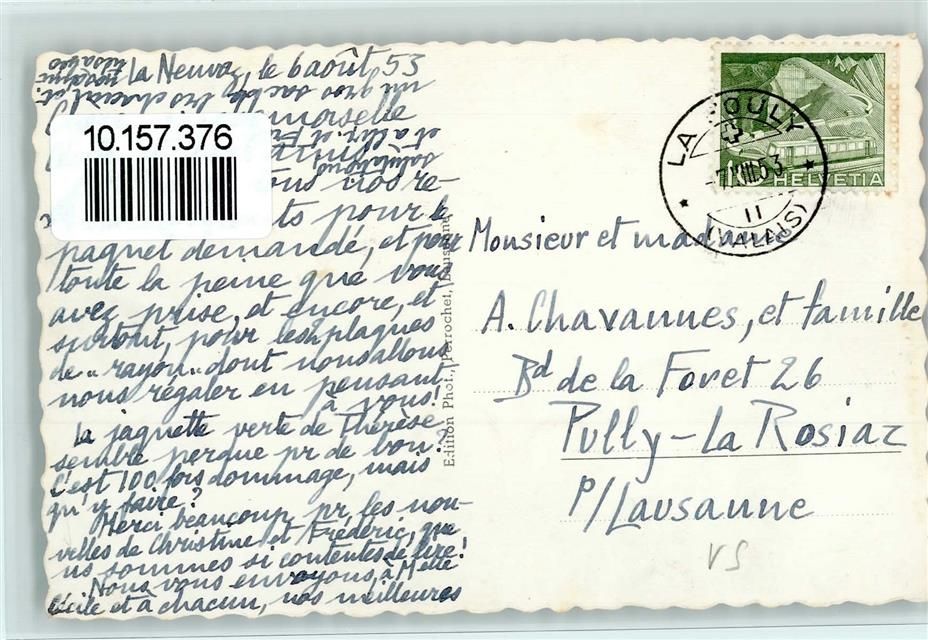 La Neuvaz, le 6 août 53
10.157.376
nos re-
pour le
paquet demandé, et pour
toute la peine que vous
avez prise, et encore, et
surtout, pour les 2 plaques
de "rayon" dont nous allons
nous régaler en pensant
à vous!
La jaquette verte de Thérèse
semble perdue pr de bon!?
C'est 100 fois dommage, mais
qu'y faire?
Merci beaucoup pr, les nou-
velles de Christine et Frédéric, que
ns sommes si contentes de lire!
Nous vous envoyons, à Melle
Cécile et à chacun, nos meilleures
salutations
Edition Phot. Perrochet, Lausanne
HELVETIA
LA FOULY
-7.VIII.53
11
(VALAIS)
Monsieur et madame
A. Chavannes, et famille
Bd de la Foret 26
Pully-La Rosiaz
p/Lausanne
VS